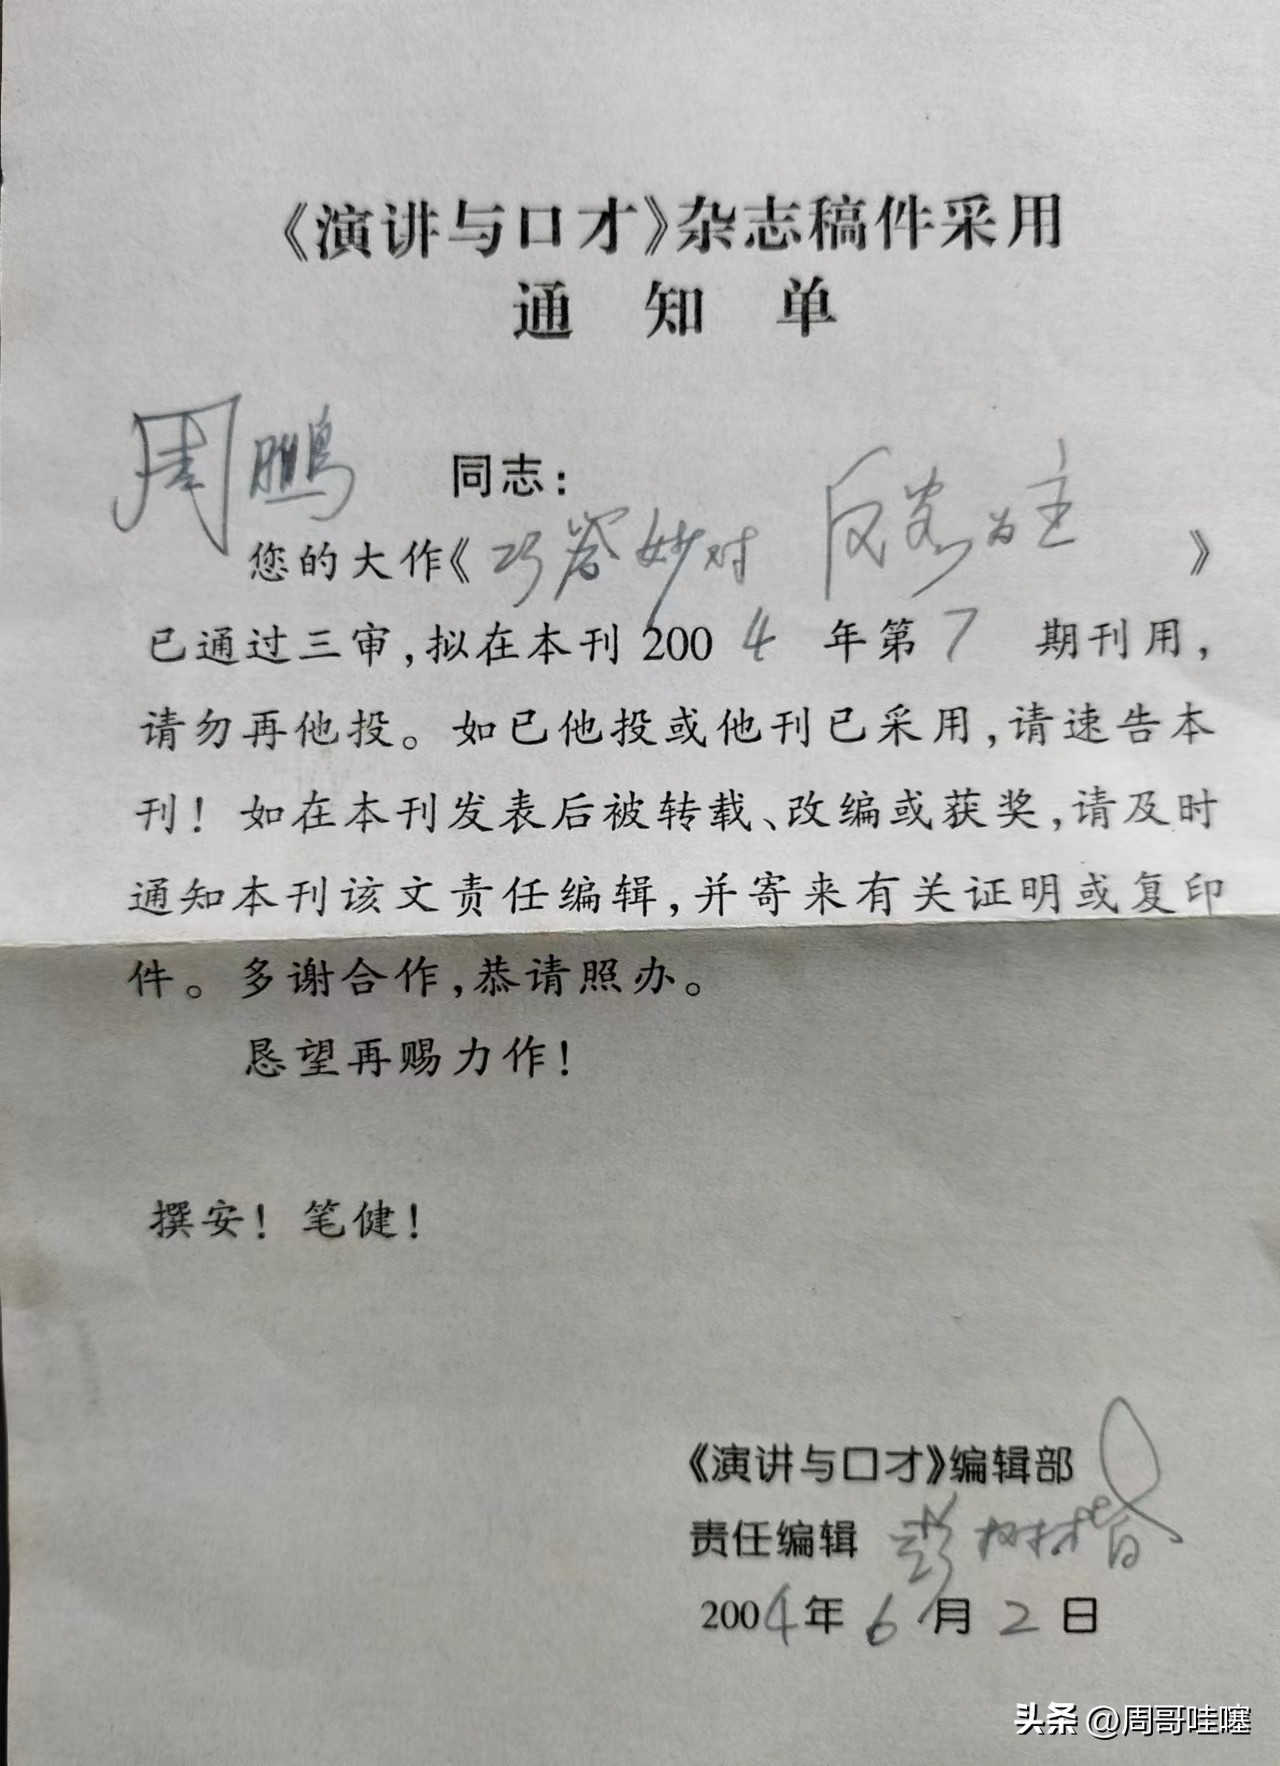 《演讲与口才》杂志稿件采用
通知单
周鹏 同志：
您的大作《巧答妙对 反客为主》
已通过三审，拟在本刊2004年第7期刊用，
请勿再他投。如已他投或他刊已采用，请速告本
刊！如在本刊发表后被转载、改编或获奖，请及时
通知本刊该文责任编辑，并寄来有关证明或复印
件。多谢合作，恭请照办。
恳望再赐力作！
撰安！笔健！
《演讲与口才》编辑部
责任编辑 彭树
2004年6月2日
头条 @周哥哇噻